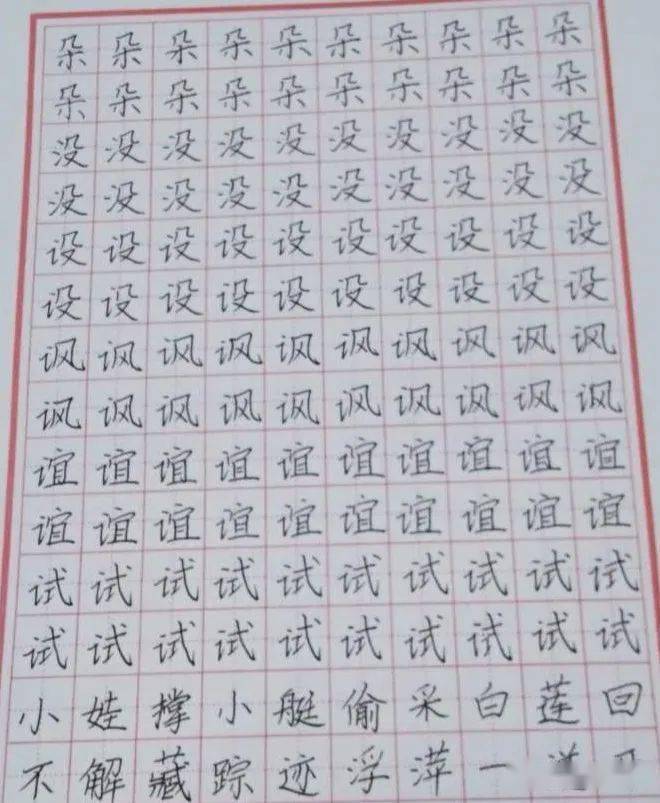 朵朵朵朵朵朵朵朵朵朵
朵朵朵朵朵朵朵朵朵朵
没没没没没没没没没没
没没没没没没没没没没
设设设设设设设设设设
设设设设设设设设设设
讽讽讽讽讽讽讽讽讽讽
讽讽讽讽讽讽讽讽讽讽
谊谊谊谊谊谊谊谊谊谊
谊谊谊谊谊谊谊谊谊谊
试试试试试试试试试试
试试试试试试试试试试
小娃撑小艇偷采白莲回
不解藏踪迹浮萍一